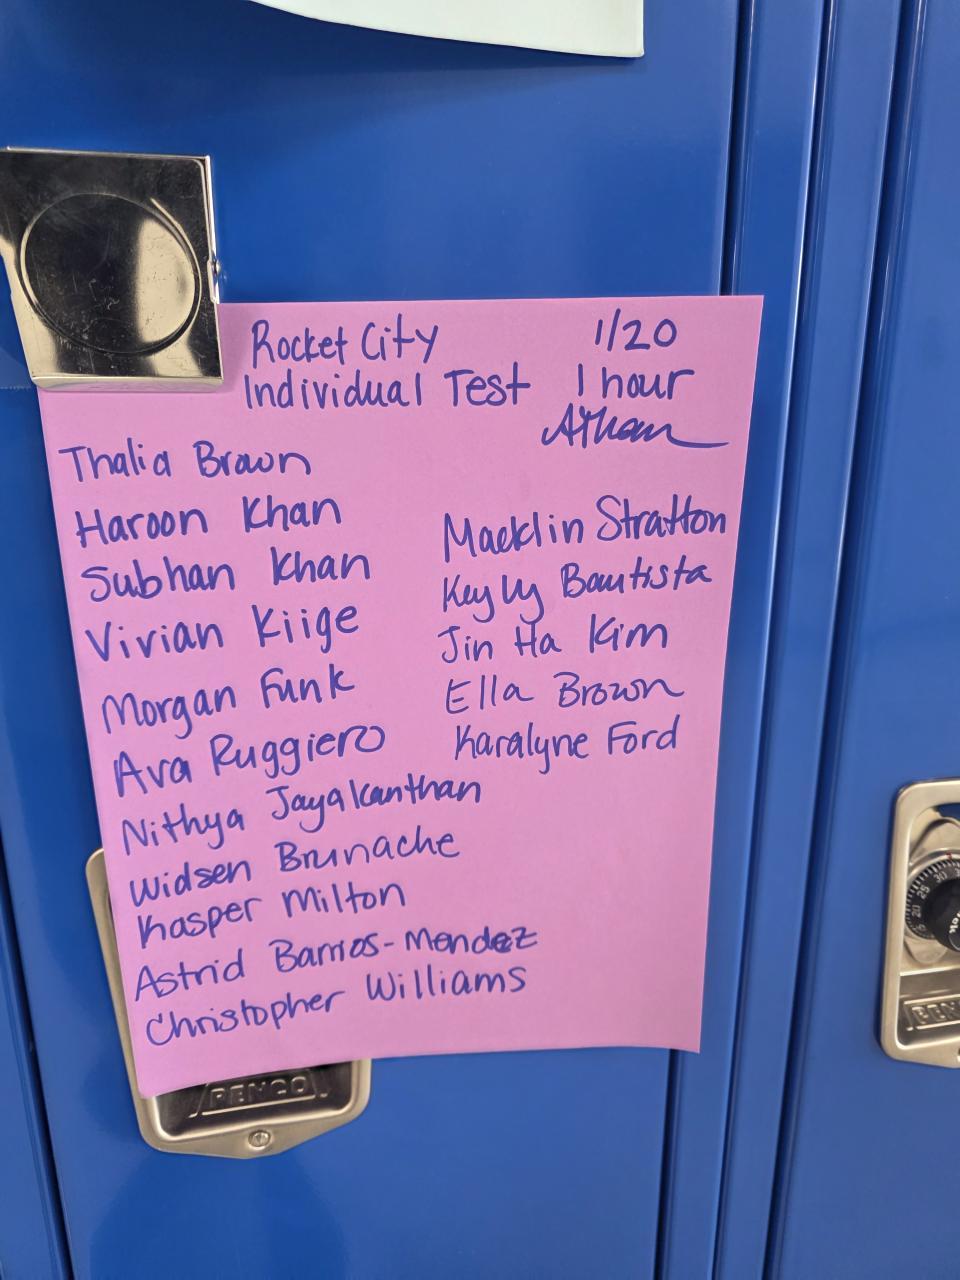 Rocket City 1/20
Individual Test 1 hour
Thalia Brown
Haroon Khan
Subhan Khan
Vivian Kiige
Morgan Funk
Ava Ruggiero
Nithya Jayakanthan
Widsen Brunache
Kasper Milton
Astrid Barrios-Mendez
Christopher Williams
Macklin Stratton
Keyly Bautista
Jin Ha Kim
Ella Brown
Karalyne Ford
PENCO
30
25
20
15